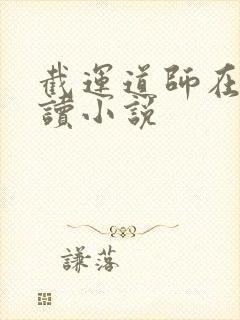 截運道師在
讀小說
謙落